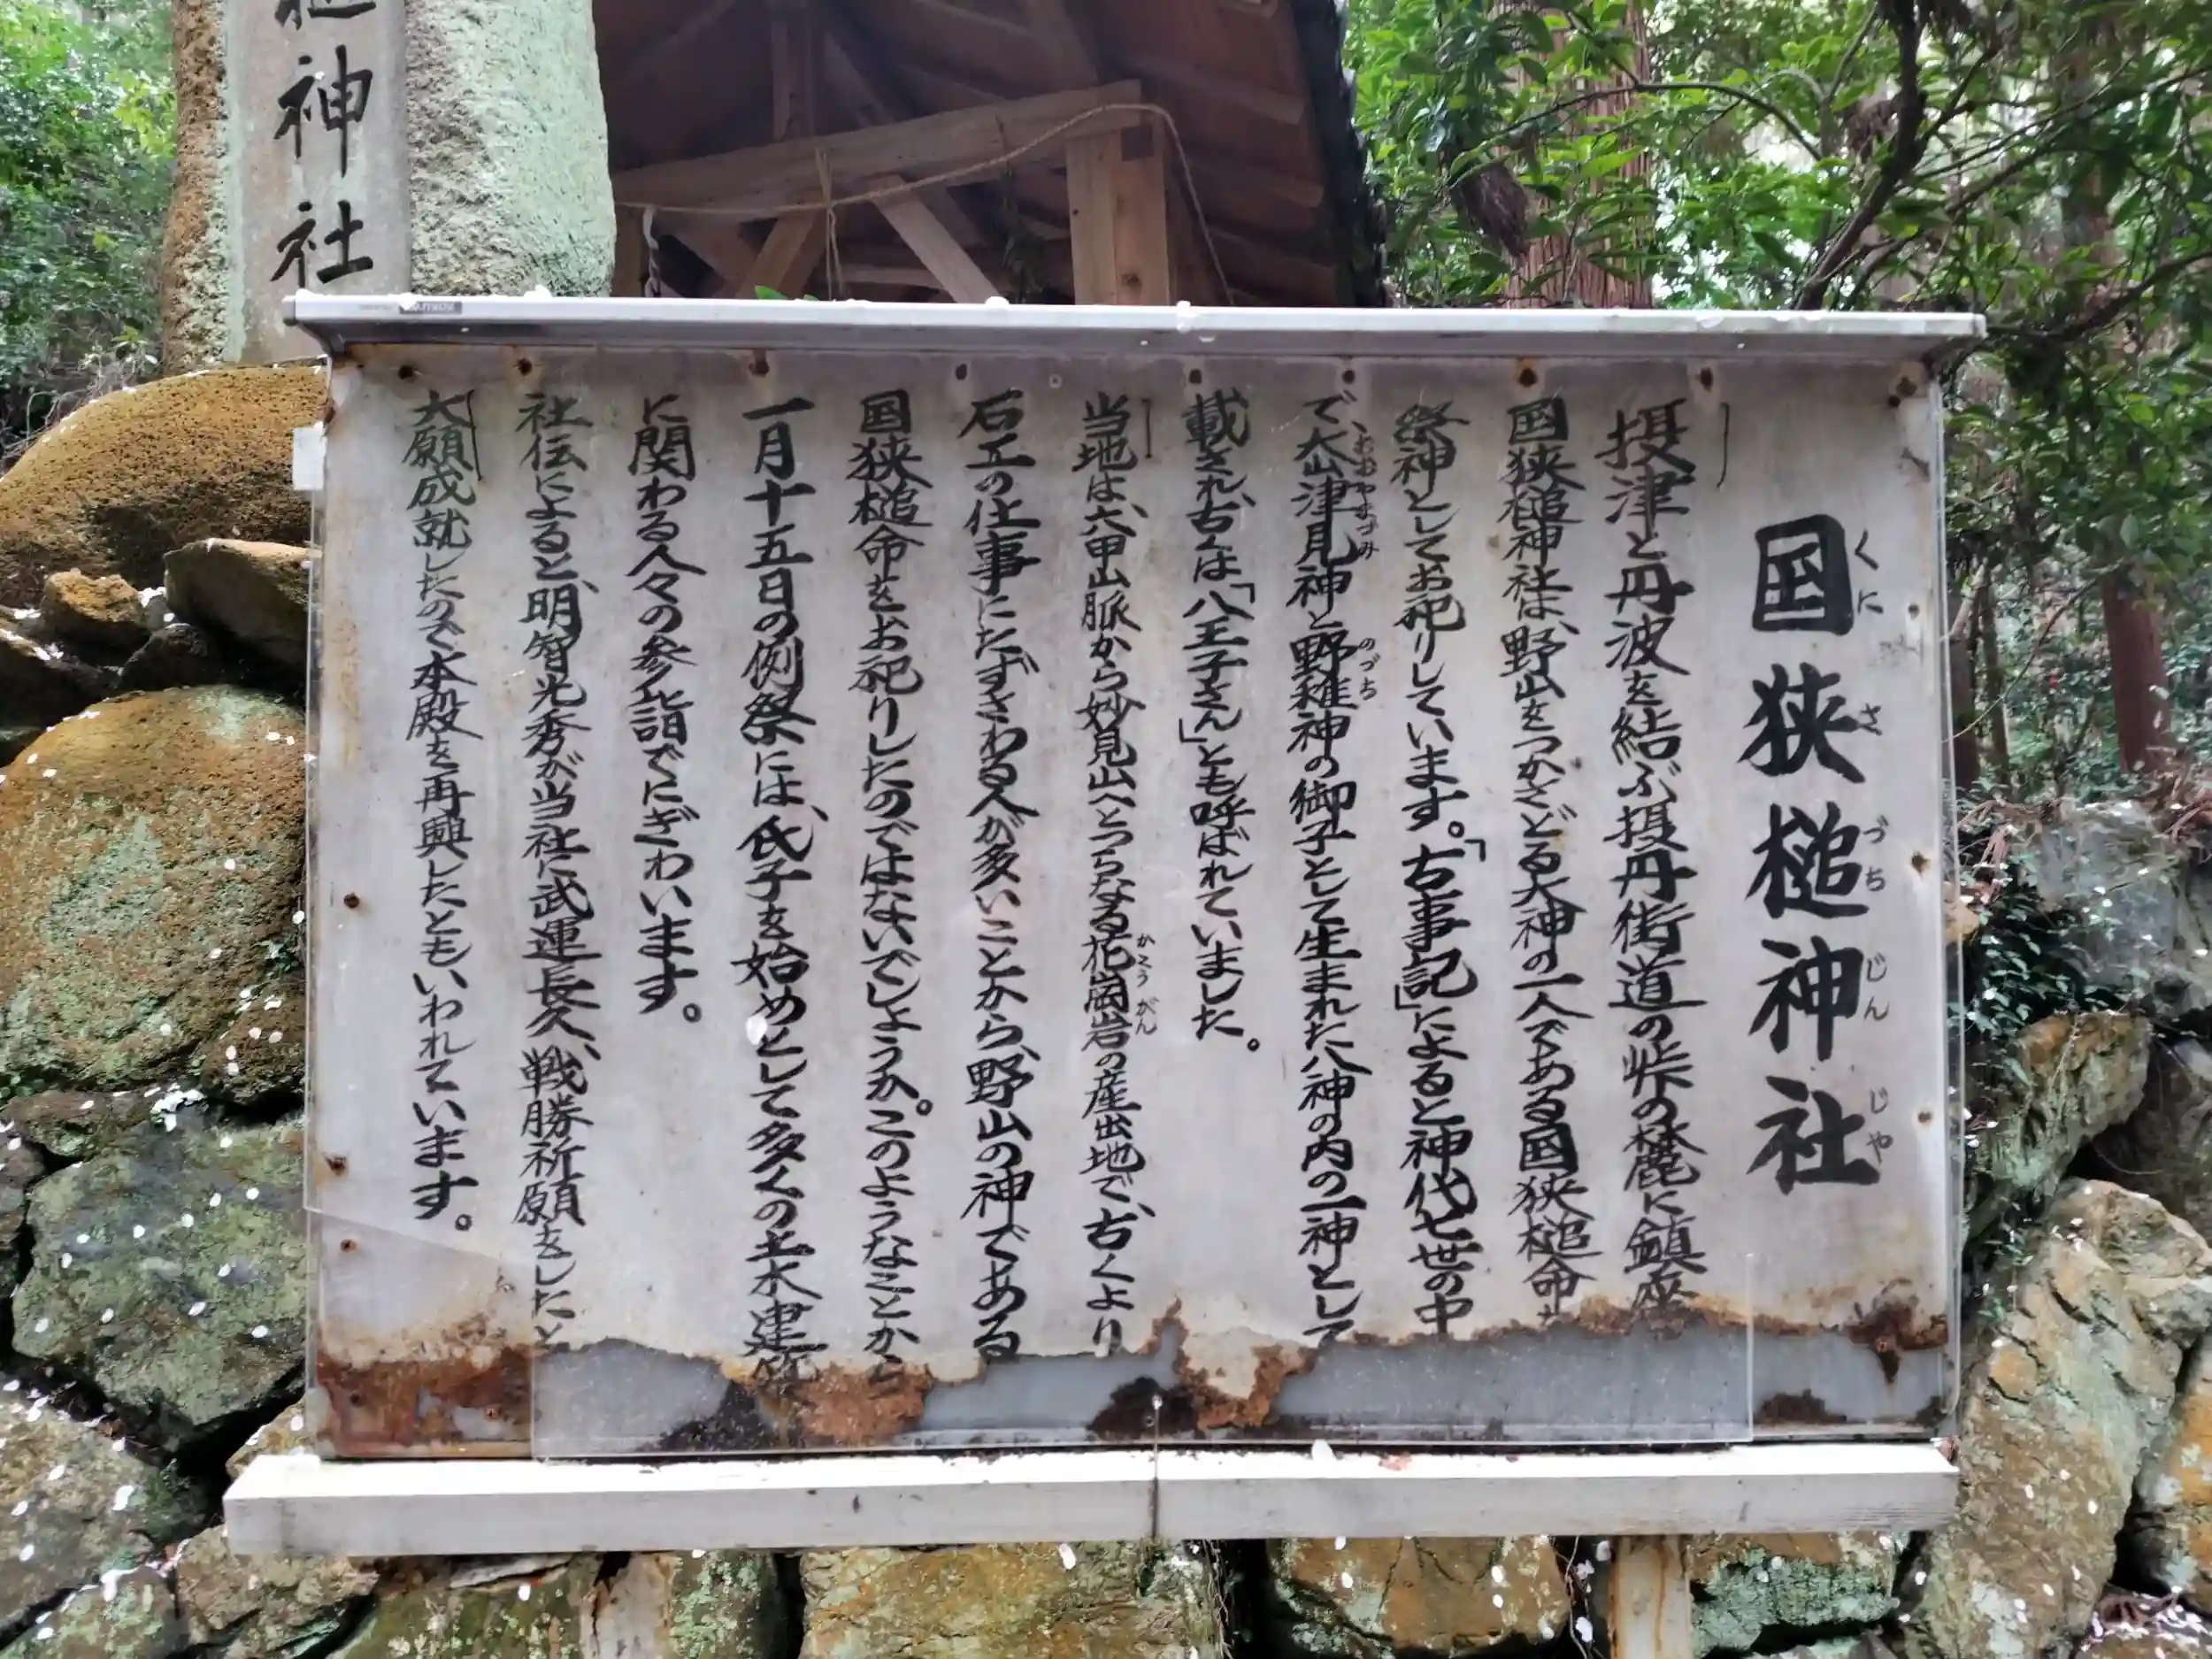 神社
国狭槌神社
くにさづちじんじゃ
摂津と丹波を結ぶ摂丹街道の峠の麓に鎮座
国狭槌神社は、野山をつかさどる大神の一人である国狭槌命を
祭神としてお祀りしています。「古事記」によると神代七世の中
で大山津見神と野稚神の御子として生まれた八神の内の一神として
おおやまづみ
のづち
載され、古くは「八王子さん」とも呼ばれていました。
当地は、六甲山脈から妙見山へとつらなる花崗岩の産出地で、古くより
かこうがん
石工の仕事にたずさわる人が多いことから、野山の神である
国狭槌命をお祀りしたのではないでしょうか。このようなことから
一月十五日の例祭には、氏子を始めとして多くの土木建築
に関わる人々の参詣でにぎわいます。
社伝によると、明智光秀が当社に武運長久、戦勝祈願をしたと
大願成就したので本殿を再興したともいわれています。